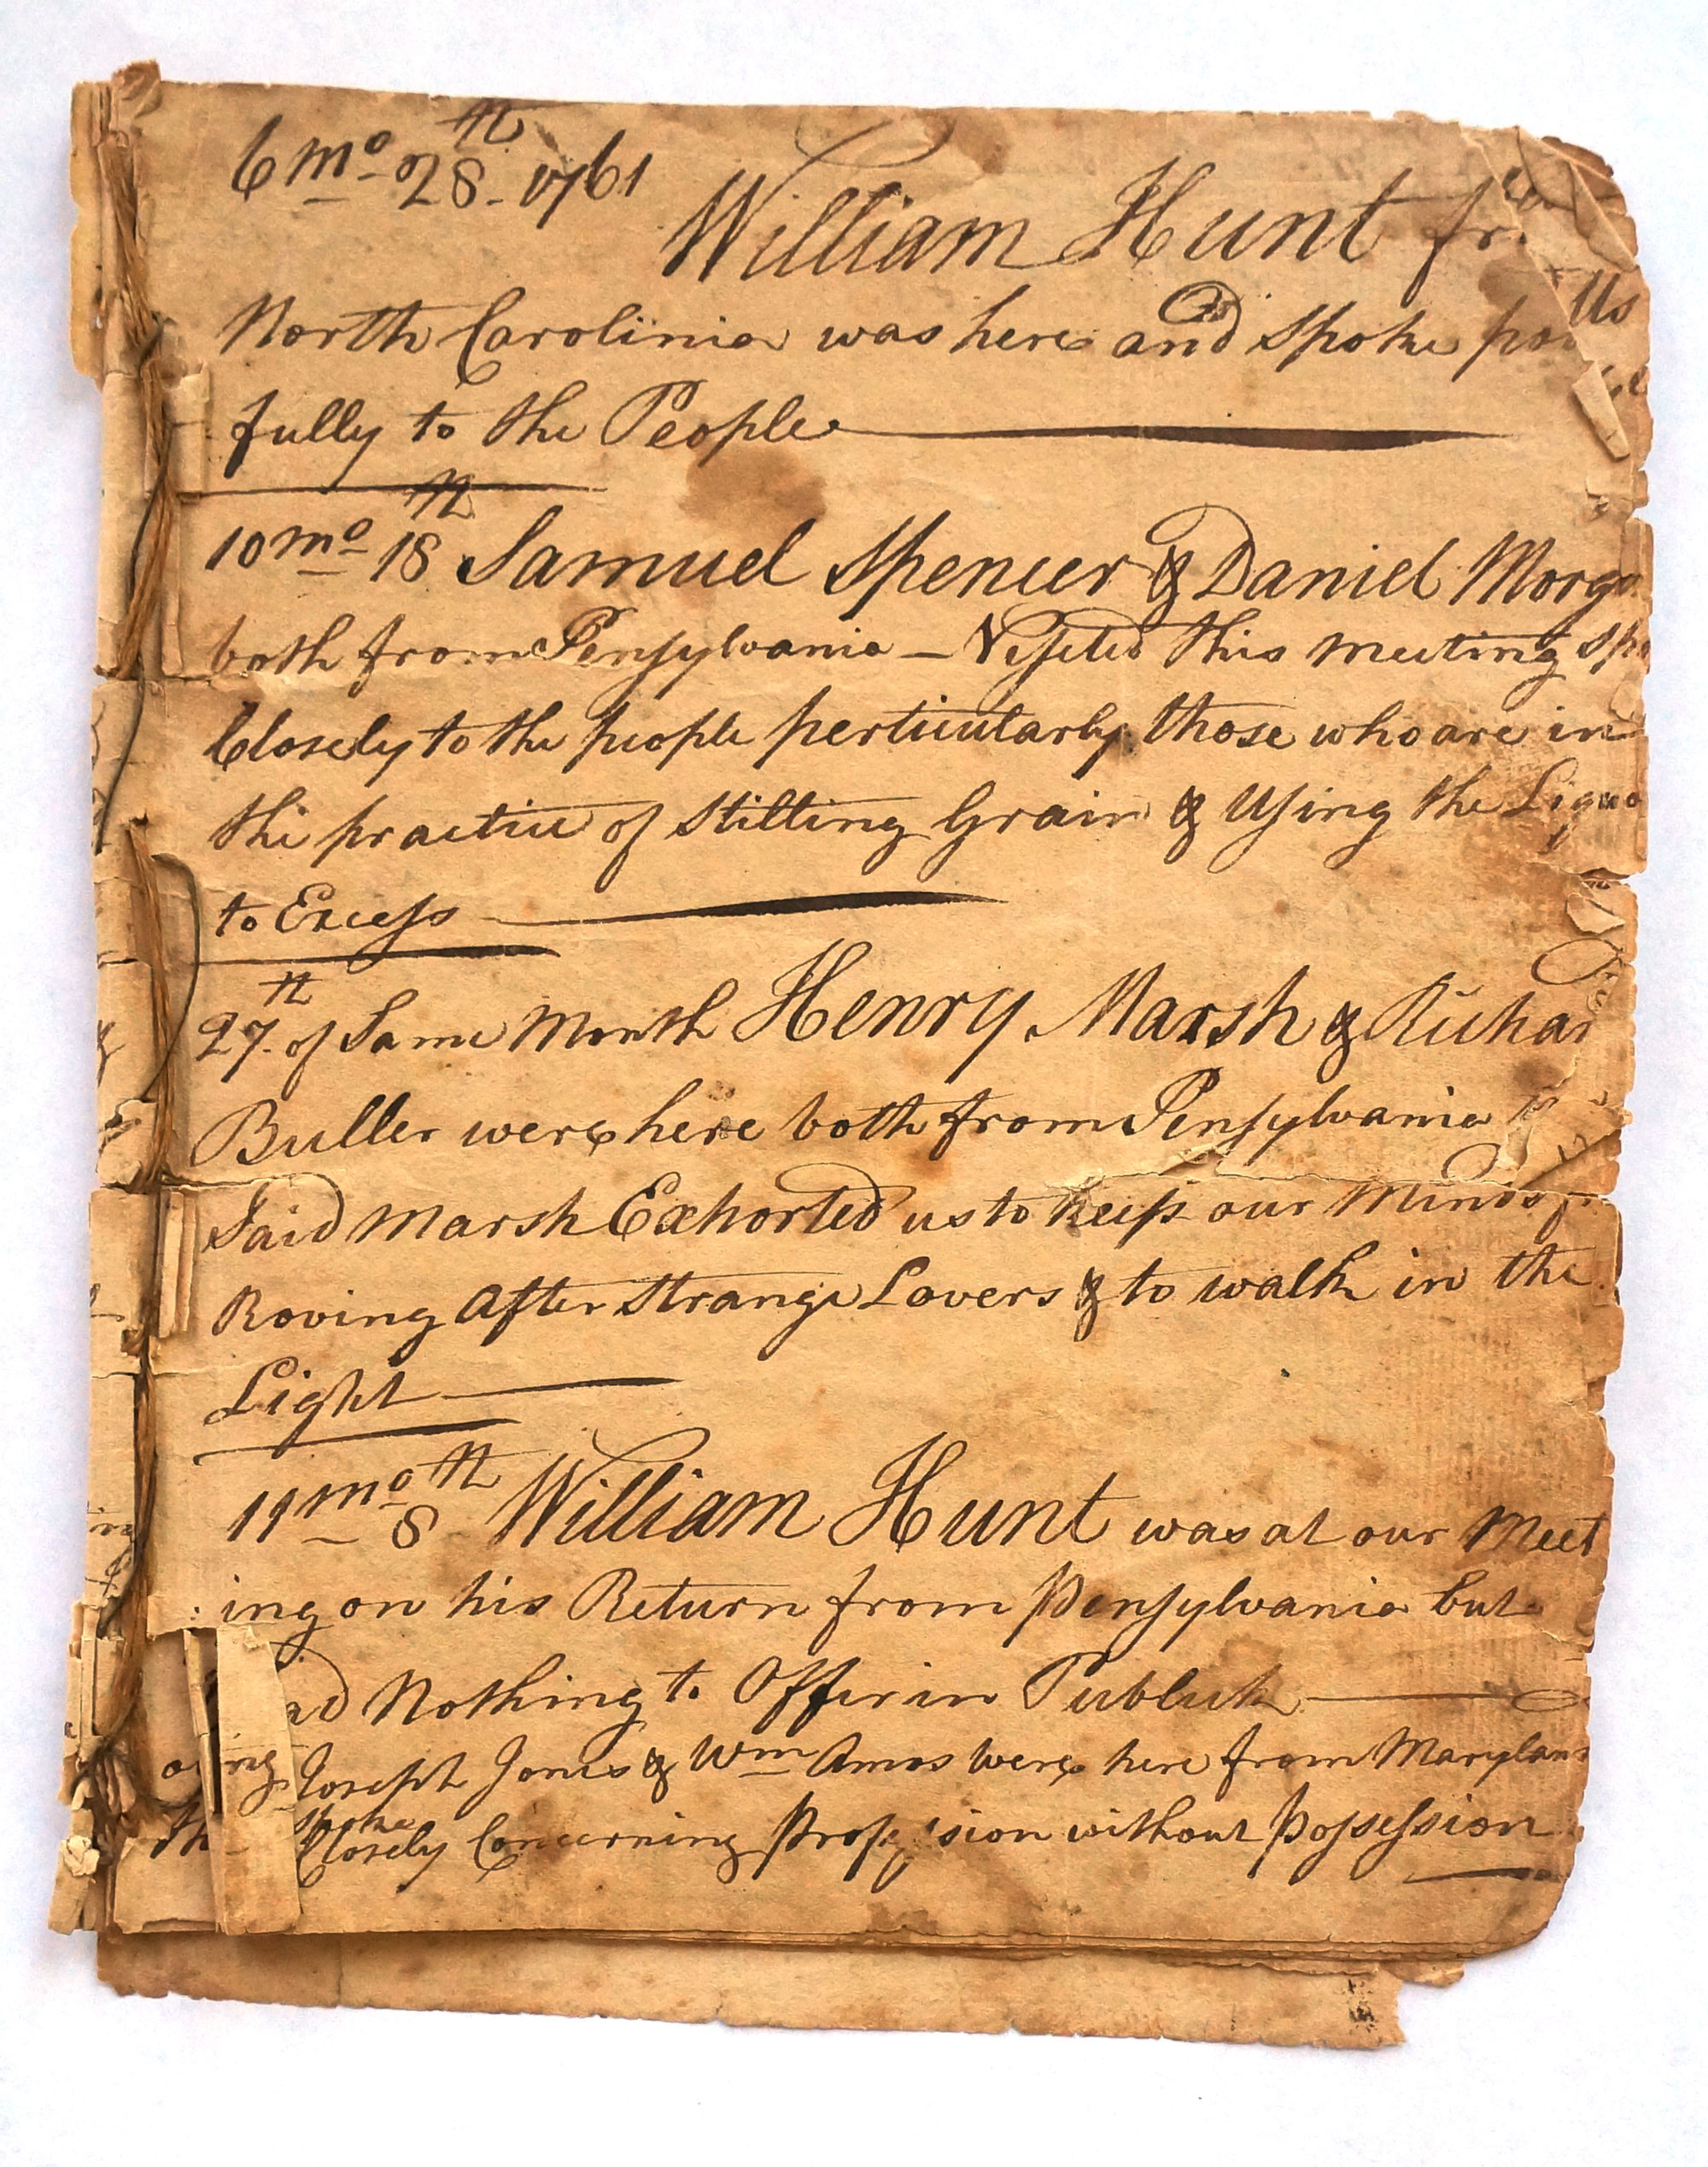 6 mo 28th 1761
William Hunt
North Carolinia was here and spoke
fully to the People
10 mo 18th Samuel Spencer & Daniel Morga
both from Pensylvania – Visited this meeting
Closely to the people perticularly those who are in
the practice of Stilling Grain & Using the Liquo
to Excess
27th of Same Month Henry Marsh & Richar
Buller were here both from Pensylvania
Said Marsh Exhorted us to keep our Minds
Roving After Strange Lovers & to walk in the
Light
11 mo 8th William Hunt was at our Meet
ing on his Return from Pensylvania but
ad Nothing to Offer in Publick
Joseph Jones & Wm Amos were here from Marylan
Spoke
Closely Concerning Profession without Possession